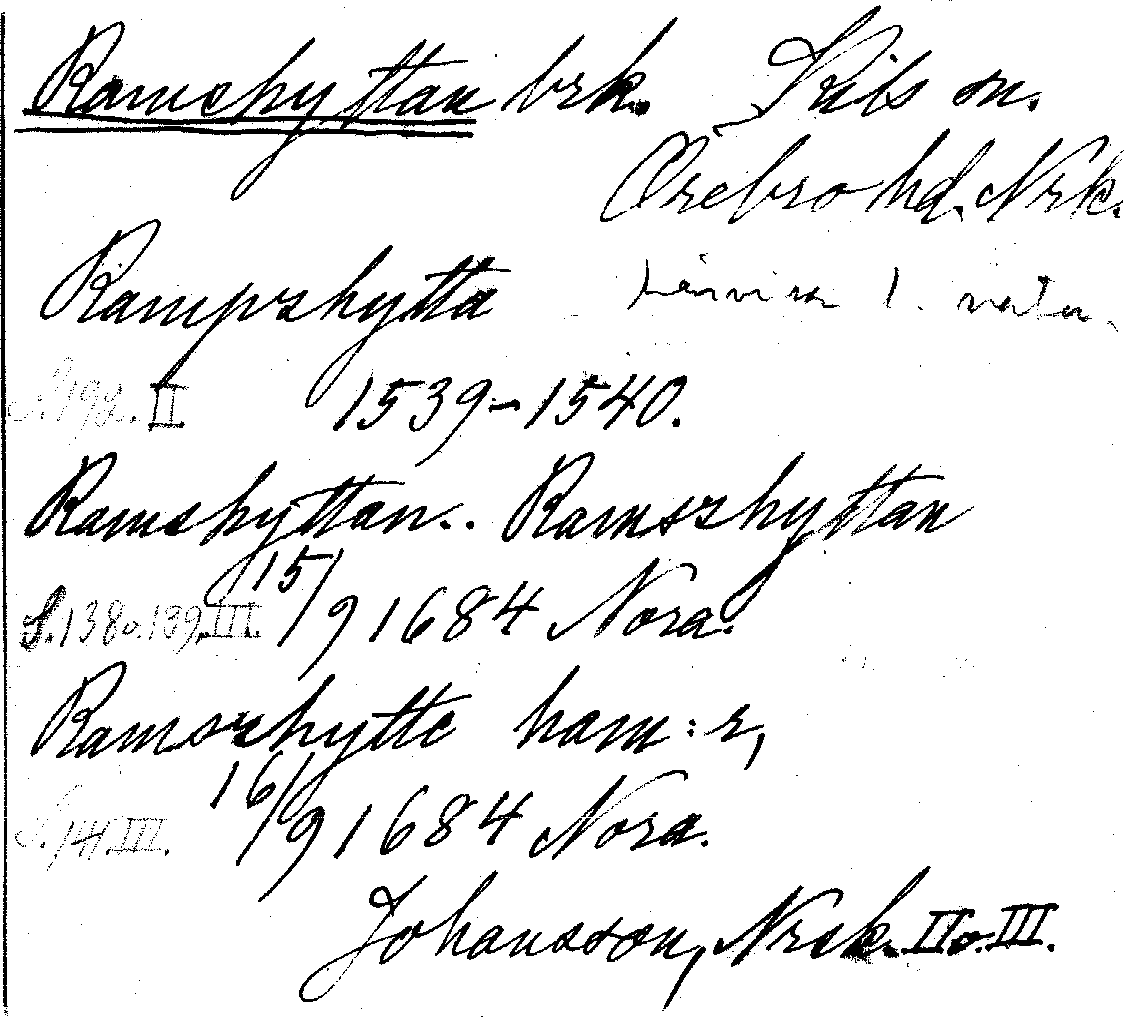 Ramshyttan brk. Kils sn.
Örebro hd. Nrk.
Rampzhytta
II 1539-1540.
Ramshyttan.. Ramszhyttan
S. 138 o. 139. III. 15/9 1684 Nora.
Ramszhytte ham:r,
S. 141. III. 16/9 1684 Nora.
Johansson, Nrsk. II o. III.